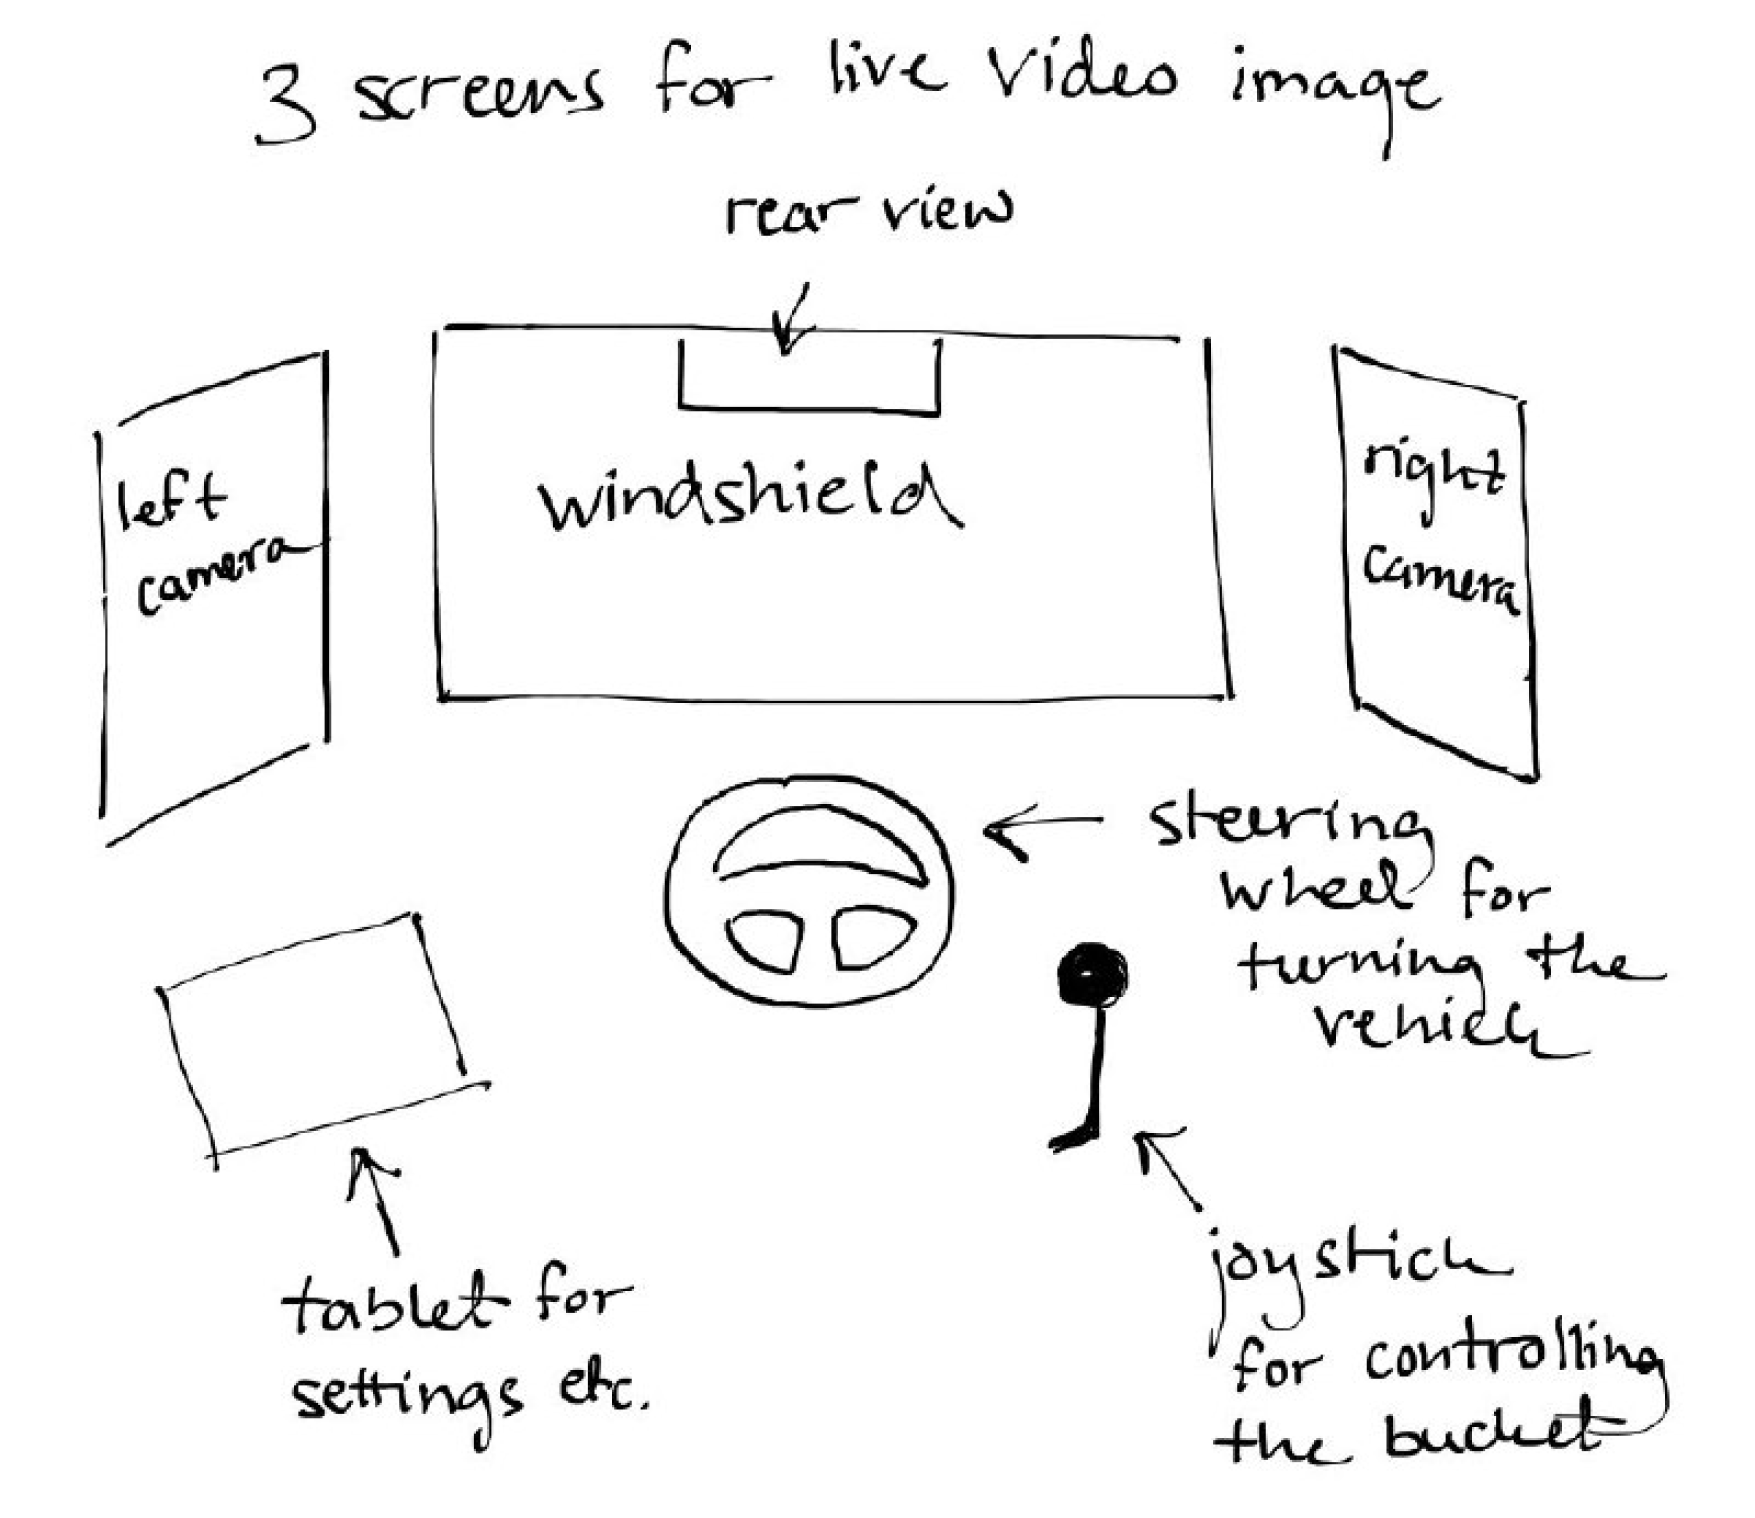 3 screens for live video image
rear view
left
camera
windshield
right
camera
steering
wheel for
turning the
vehicle
tablet for
settings etc.
joystick
for controlling
the bucket